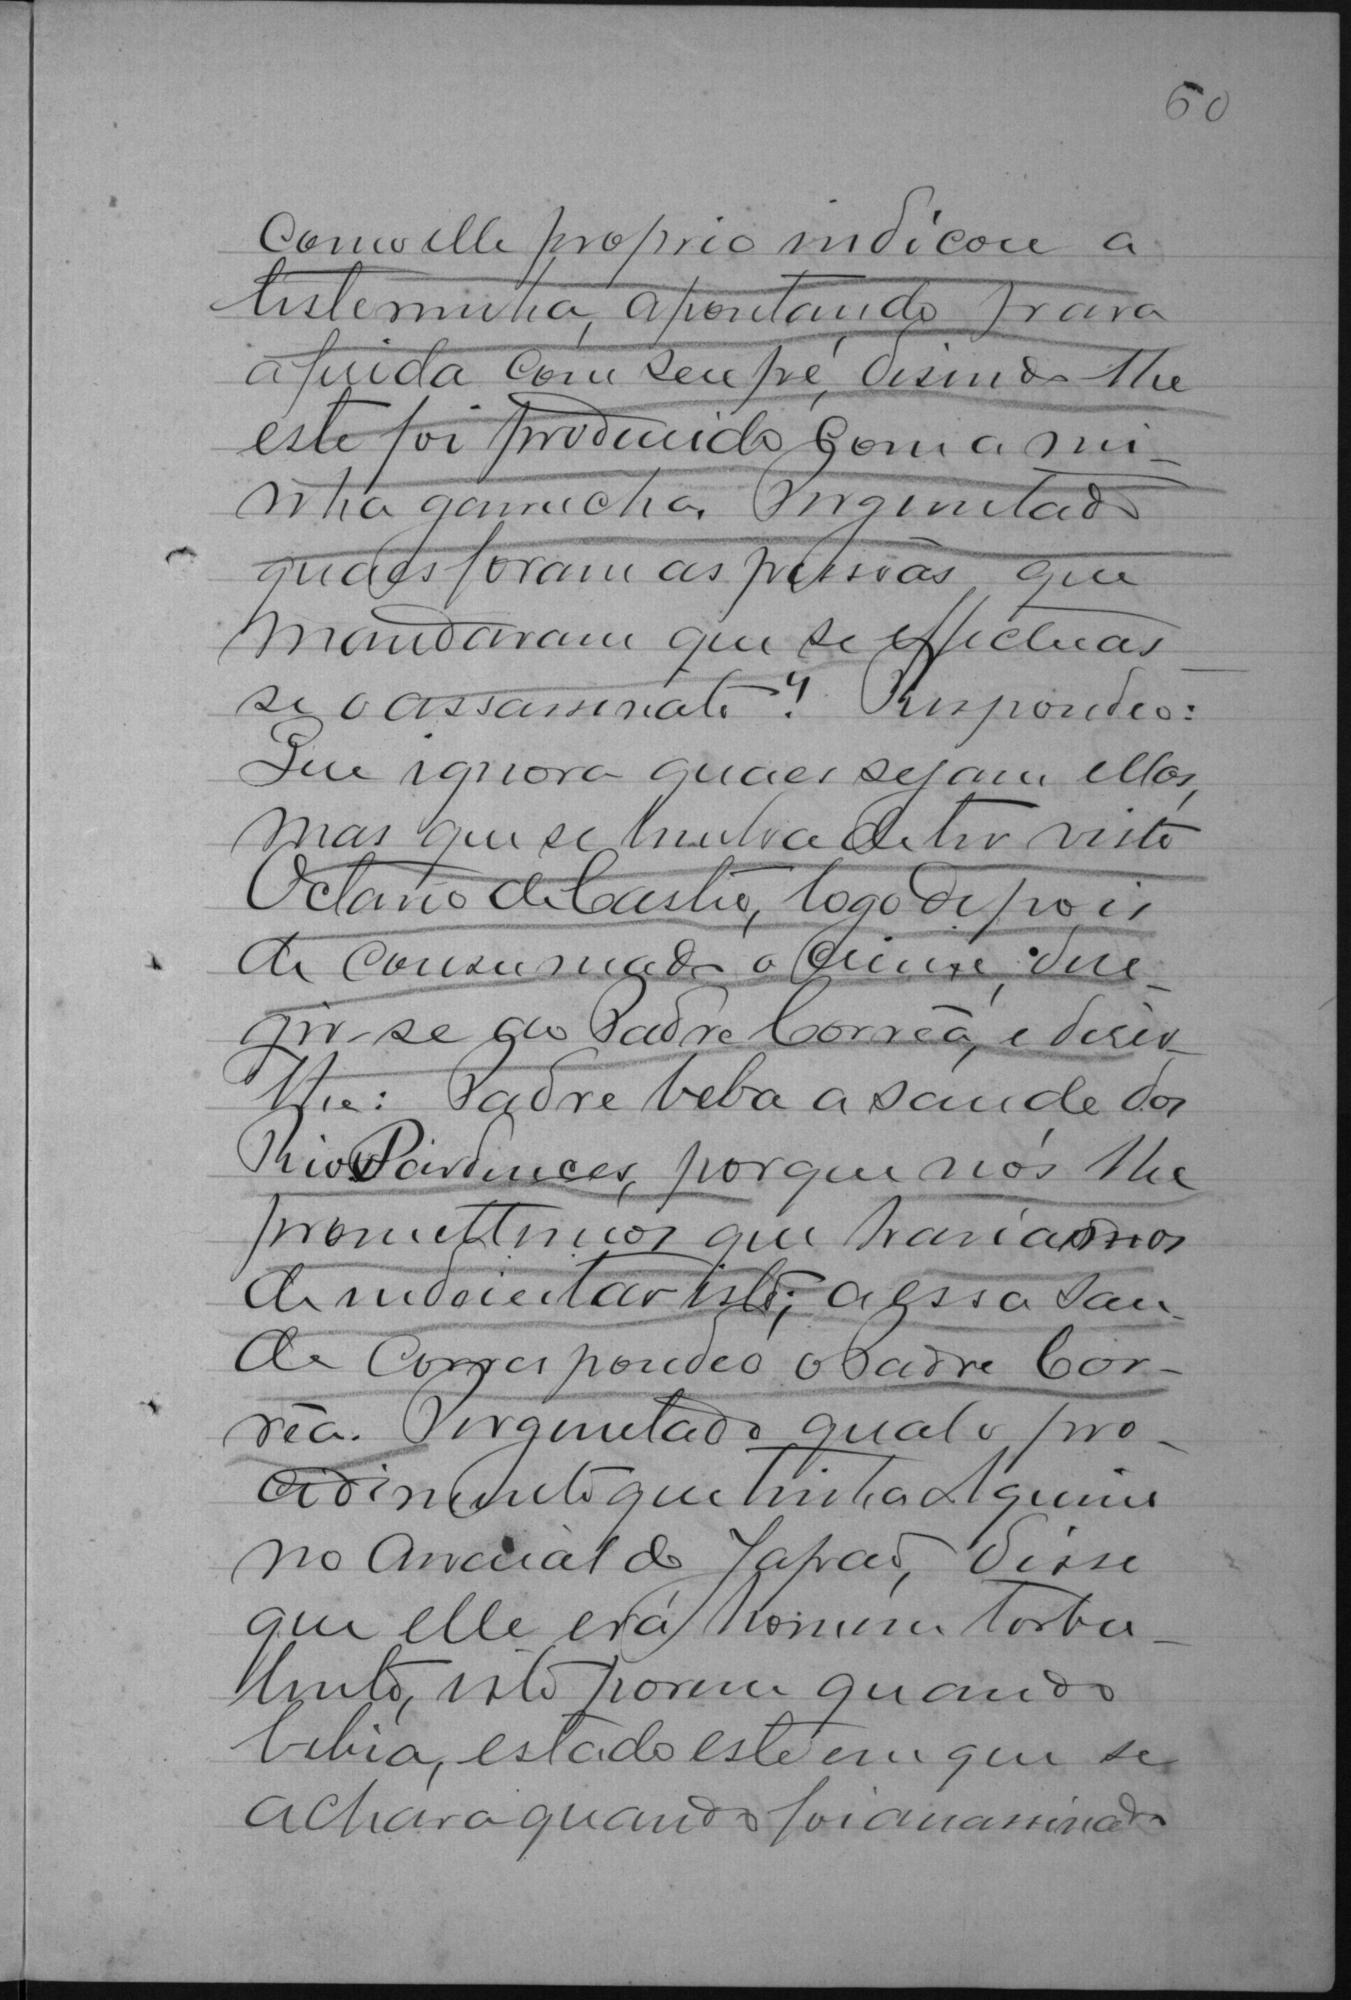 60
como elle proprio indicou a
testemunha, apontando para
a firida com seu pé, disindo lhe
este foi produzido com a mi-
nha garrucha. Perguntado
quaes foram as pessoas que
mandaram que se effectuas-
se o assassinato? Respondeo:
Que ignora quaes sejam ellas,
mas que se lembra de ter visto
Octavio de Castro, logo depois
de consumado o crime, dire-
gir-se ao Padre Corrêa, e diser
lhe: Padre beba a saude dos
Rio Pardences, porque nós lhe
promettemos que hariamos
de endireitar isto; a essa sau-
de correspondeo o Padre Cor-
rêa. Perguntado qual o pro-
cidimento que tinha Aquino
no Arraial do Japão, disse
que elle era homem torbu-
lento, isto porem quando
bebia, estado este em que se
achava quando foi assassinado